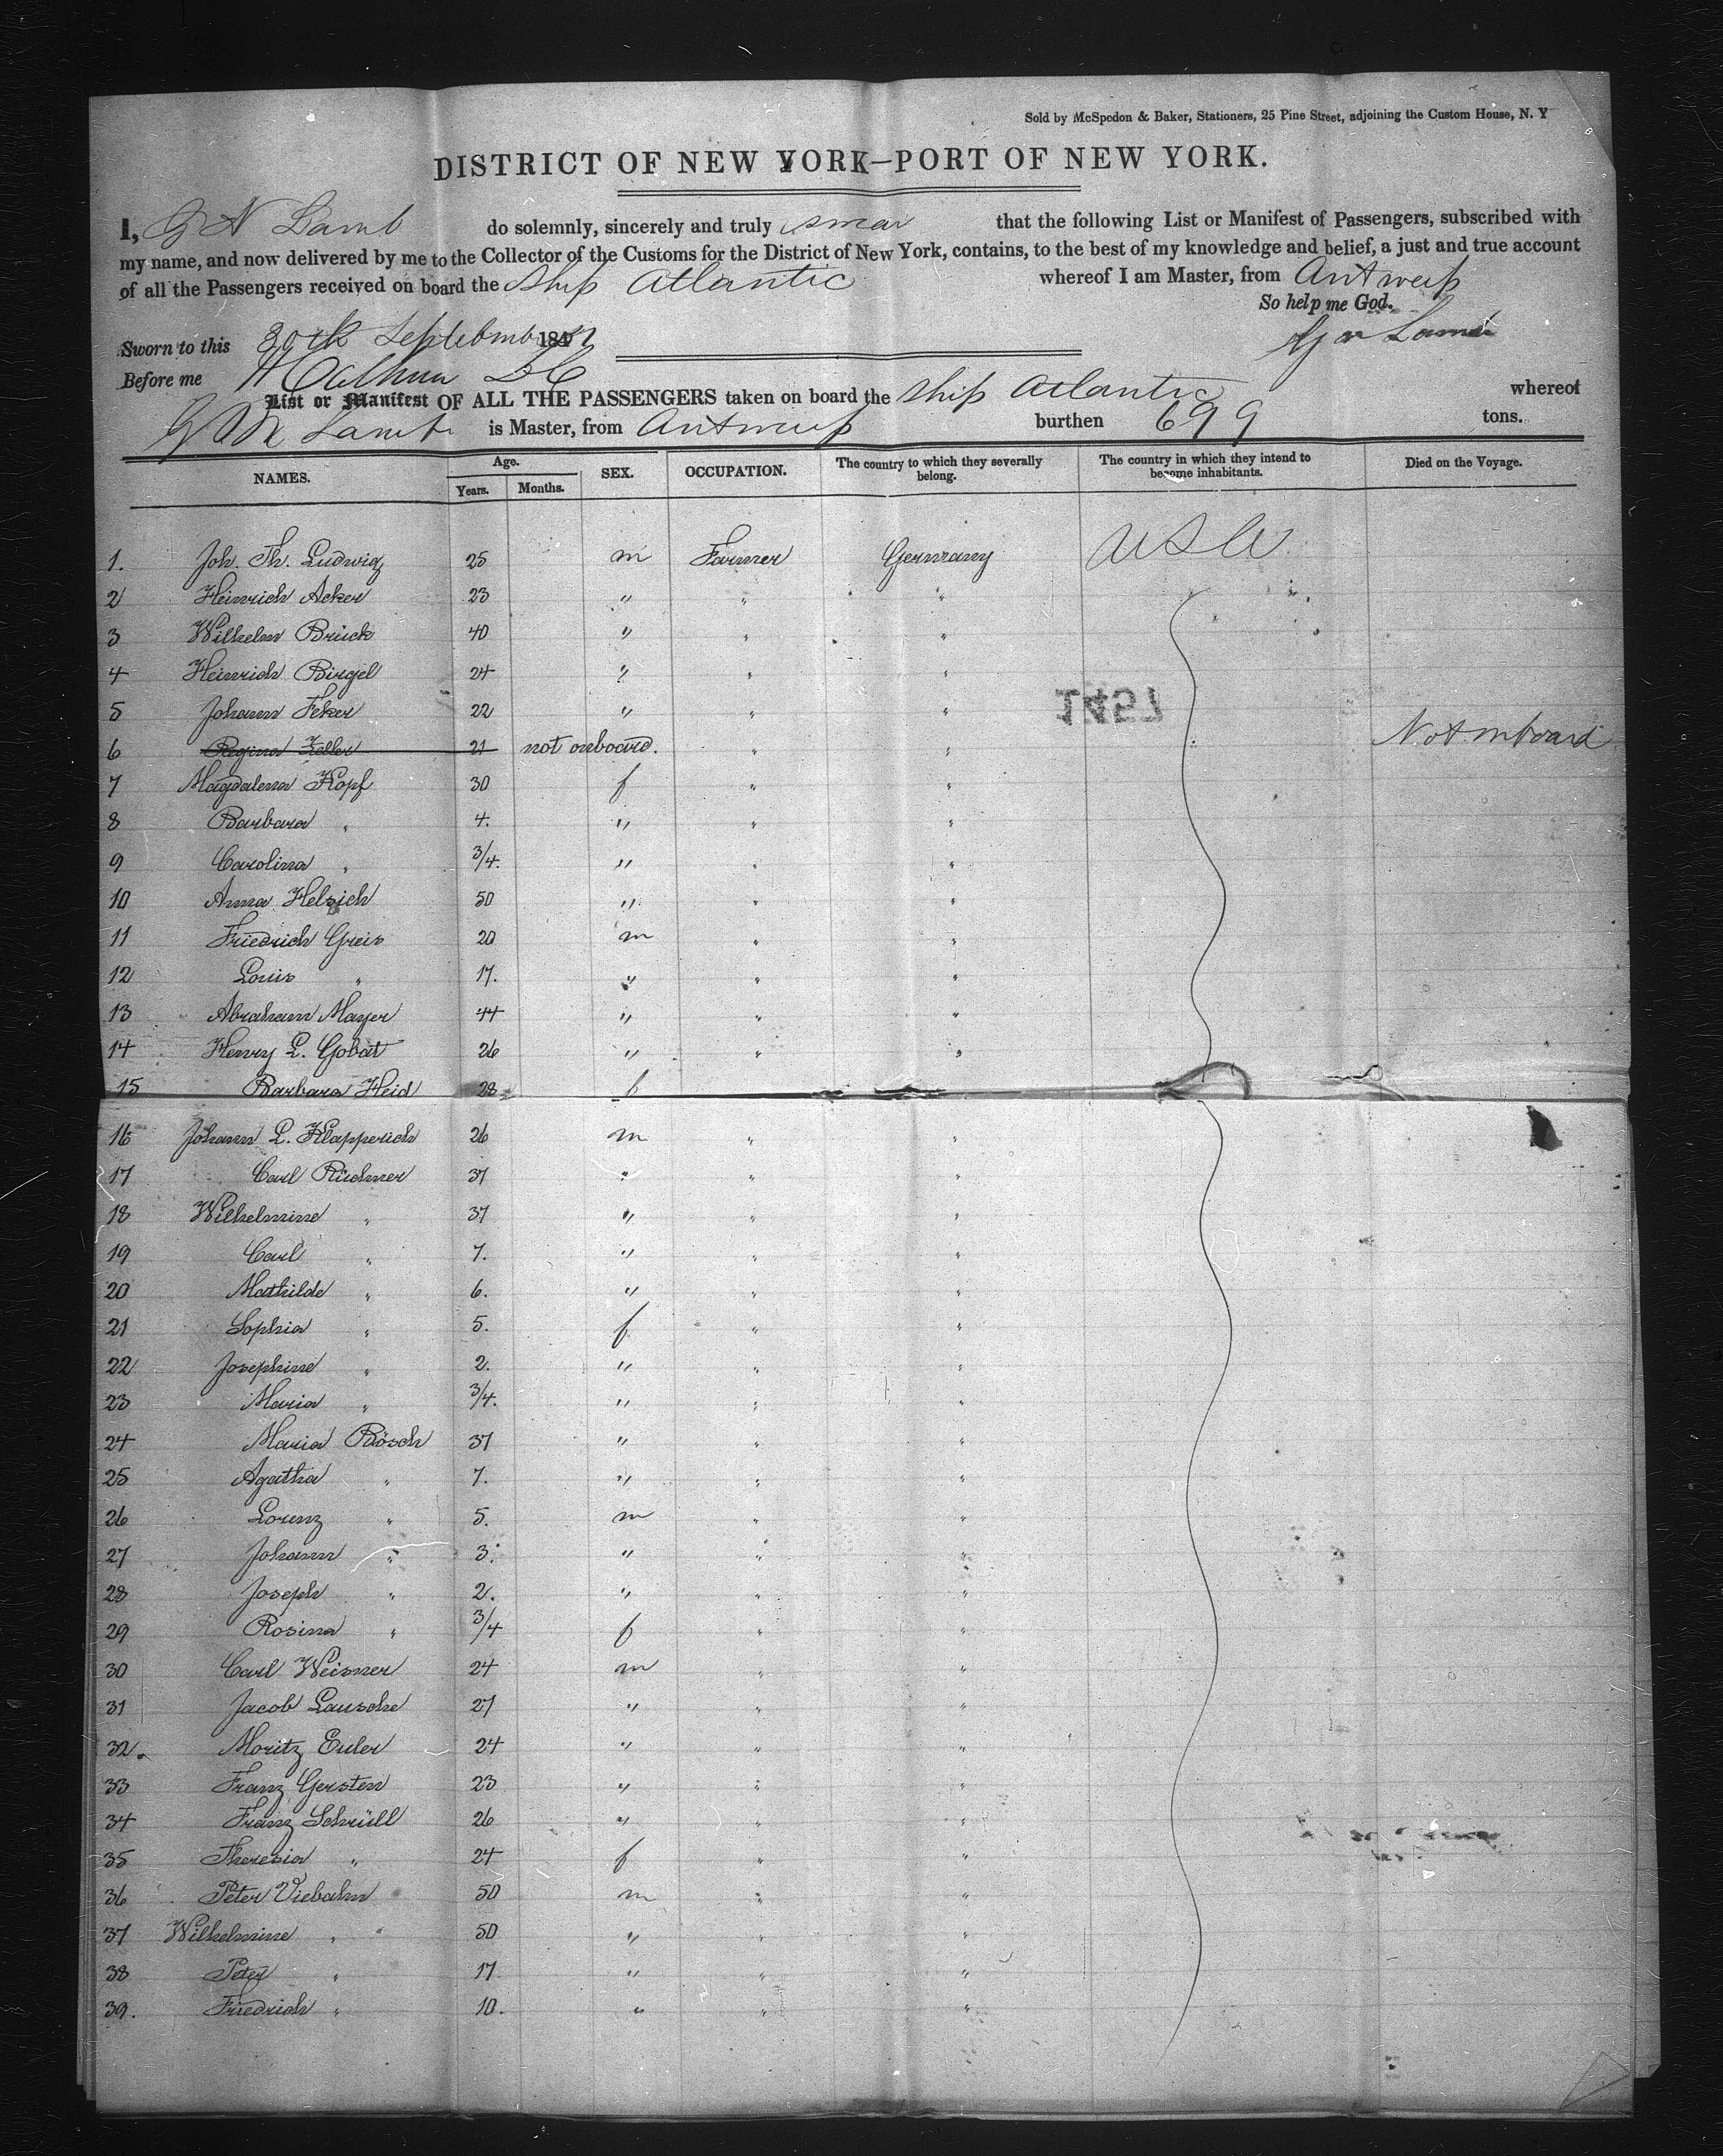 Sold by McSpedon & Baker, Stationers, 25 Pine Street, adjoining the Custom House, N. Y
DISTRICT OF NEW YORK—PORT OF NEW YORK.
I, G N Lamb do solemnly, sincerely and truly swear that the following List or Manifest of Passengers, subscribed with
my name, and now delivered by me to the Collector of the Customs for the District of New York, contains, to the best of my knowledge and belief, a just and true account
of all the Passengers received on board the Ship Atlantic whereof I am Master, from Antwerp
So help me God.
Sworn to this 30th September 18
Lamb
Before me
List or Manifest OF ALL THE PASSENGERS taken on board the Ship Atlantic whereof
Lamb is Master, from Antwerp burthen 699 tons.
NAMES. Age. Years. Months. SEX. OCCUPATION. The country to which they severally belong. The country in which they intend to become inhabitants. Died on the Voyage.
1. Joh. Th. Ludwig 25 m Farmer Germany U S A
2 Heinrich Acker 23 " " " "
3 Wilhelm Brück 40 " " "
4 Heinrich Birgel 24 " " "
5 Johann Feker 22 " " "
1457
6 Regina Zeller 21 not onboard. " " Not onboard
7 Magdalena Kopf 30 f " "
8 Barbara " 4. " " "
9 Carolina " 3/4. " " "
10 Anna Helsich 50 " " "
11 Friedrich Greis 20 m " "
12 Louis " 17. " " "
13 Abraham Mayer 44 " " "
14 Henry L. Gobat 26 " " "
15 Barbara Heid 28 f
16 Johann L. Klapperich 26 m " "
17 Carl Rüchner 37 " " "
18 Wilhelmine " 37 " " "
19 Carl " 7. " " "
20 Mathilde " 6. " " "
21 Sophia " 5. f " "
22 Josephine " 2. " " "
23 Maria " 3/4. " " "
24 Maria Bösch 37 " " "
25 Agatha " 7. " " "
26 Lorenz " 5. m " "
27 Johann " 3. " " "
28 Joseph " 2. " " "
29 Rosina " 3/4 f " "
30 Carl Weisner 24 m " "
31 Jacob Lausche 27 " " "
32. Moritz Euler 24 " " "
33 Franz Gersten 23 " " "
34 Franz Schrüll 26 " " "
35 Theresia " 24 f " "
36 Peter Viebahn 50 m " "
37 Wilhelmine " 50 " " "
38 Peter " 17. " " "
39. Friedrich " 10. " " "